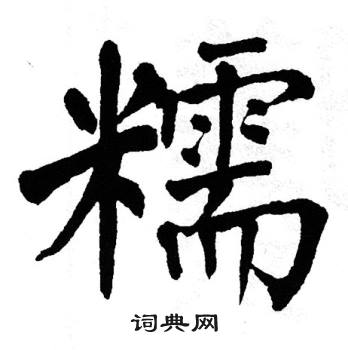 糯
词典网